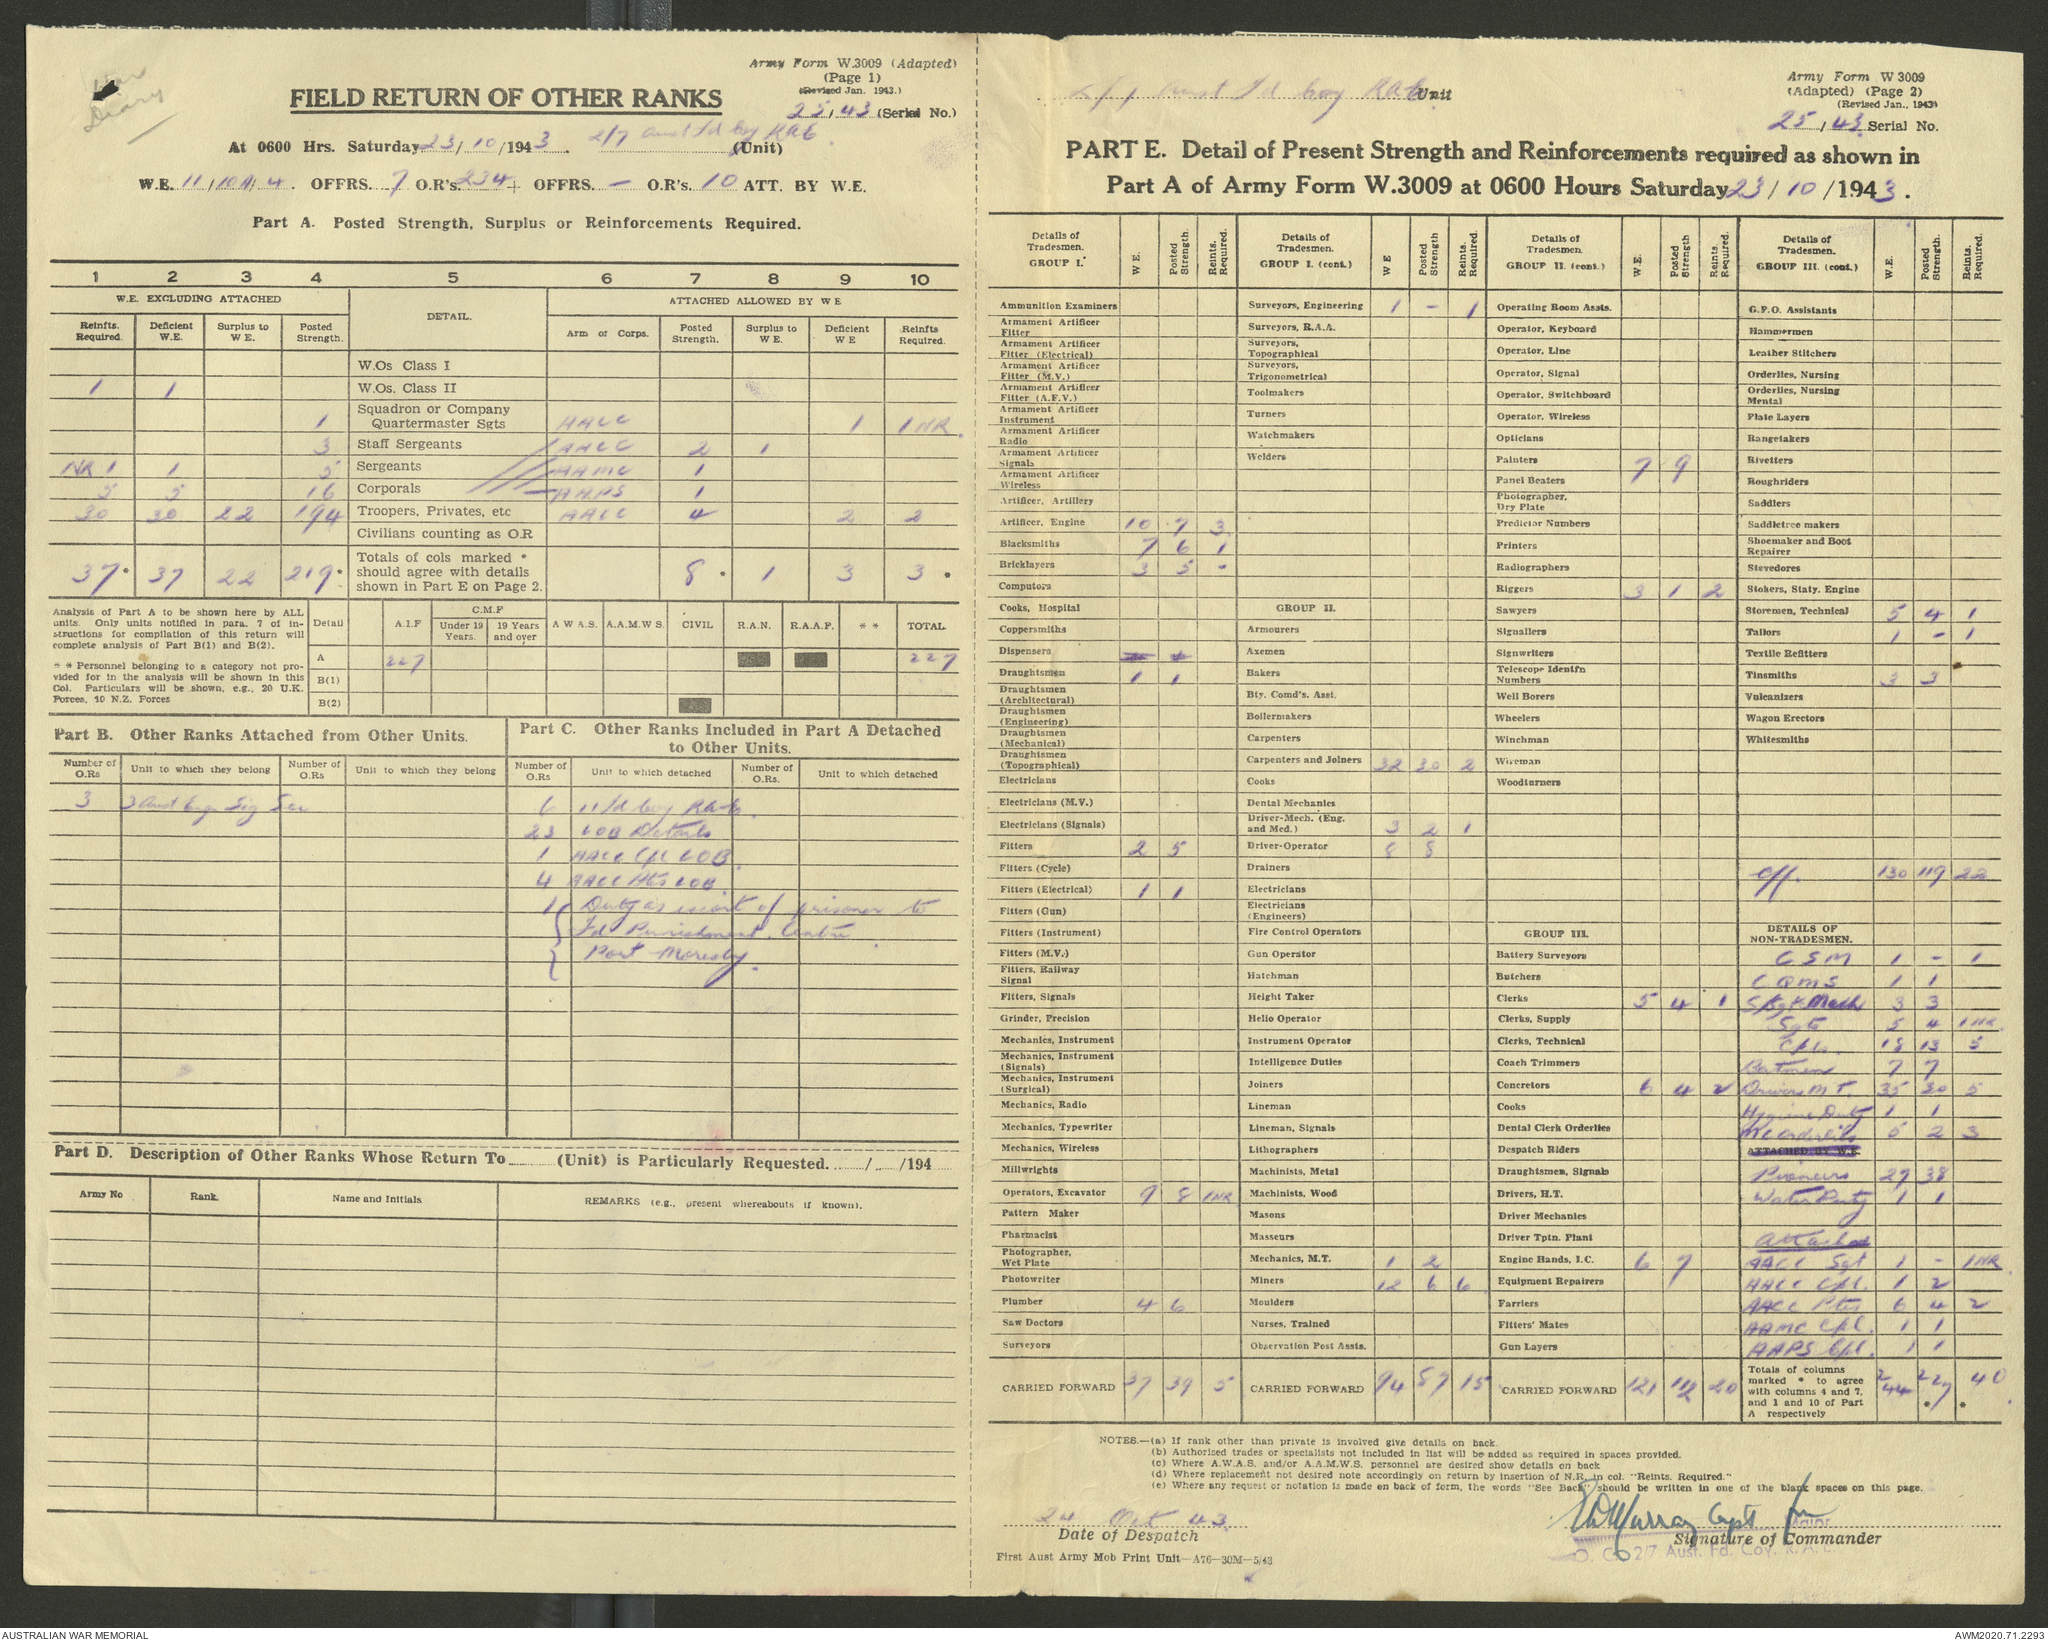 War
Diary
Army Form W.3009 (Adapted)
(Page 1)
(Revised Jan. 1943.)
25/43 (Serial No.)
FIELD RETURN OF OTHER RANKS
At 0600 Hrs. Saturday 23/10/1943. 2/7 Aust Fd Coy RAE (Unit)
W.E. 11/10A/4. OFFRS. 7 O.R's. 234 + OFFRS. - O.R's. 10 ATT. BY W.E.
Part A. Posted Strength, Surplus or Reinforcements Required.
1 2 3 4 5 6 7 8 9 10
W.E. EXCLUDING ATTACHED DETAIL. ATTACHED ALLOWED BY W E
Reinfts. Required. Deficient W.E. Surplus to W E. Posted Strength. Arm or Corps. Posted Strength. Surplus to W E. Deficient W E Reinfts Required.
W.Os Class I
1 1 W.Os. Class II
1 Squadron or Company Quartermaster Sgts AACC 1 1 NR.
3 Staff Sergeants AACC 2 1
NR 1 1 5 Sergeants AAMC 1
5 5 16 Corporals AAPS 1
30 30 22 194 Troopers, Privates, etc AACC 4 2 2
Civilians counting as O.R
37* 37 22 219* Totals of cols marked * should agree with details shown in Part E on Page 2. 8* 1 3 3*
Analysis of Part A to be shown here by ALL units. Only units notified in para. 7 of instructions for compilation of this return will complete analysis of Part B(1) and B(2).
* * Personnel belonging to a category not provided for in the analysis will be shown in this Col. Particulars will be shown, e.g., 20 U.K. Forces, 10 N.Z. Forces
Detail A.I.F C.M.F Under 19 Years. 19 Years and over A W A S. A.A.M.W S. CIVIL R.A.N. R.A.A.F. * * TOTAL
A 227 227
B(1)
B(2)
Part B. Other Ranks Attached from Other Units.
Number of O.Rs Unit to which they belong Number of O.Rs Unit to which they belong
3 3 Aust Engr Sig Sec
Part C. Other Ranks Included in Part A Detached to Other Units.
Number of O.Rs. Unit to which detached Number of O.Rs. Unit to which detached
6 11 Fd Coy RAE.
23 LOB Details
1 AACC Cpl LOB.
4 AACC Ptes LOB.
1 Duty as escort of prisoner to
Fd Punishment Centre
Port Moresby.
Part D. Description of Other Ranks Whose Return To (Unit) is Particularly Requested. / /194
Army No Rank. Name and Initials REMARKS (e.g., present whereabouts if known).
2/7 Aust Fd Coy RAE. Unit
Army Form W 3009
(Adapted) (Page 2)
(Revised Jan., 1943)
25/43 Serial No.
PART E. Detail of Present Strength and Reinforcements required as shown in
Part A of Army Form W.3009 at 0600 Hours Saturday 23/10/1943.
Details of Tradesmen. GROUP I. W E. Posted Strength. Reints. Required.
Ammunition Examiners
Armament Artificer Fitter
Armament Artificer Fitter (Electrical)
Armament Artificer Fitter (M.V.)
Armament Artificer Fitter (A.F.V.)
Armament Artificer Instrument
Armament Artificer Radio
Armament Artificer Signals
Armament Artificer Wireless
Artificer, Artillery
Artificer, Engine 10 7 3
Blacksmiths 7 6 1
Bricklayers 3 5 -
Computors
Cooks, Hospital
Coppersmiths
Dispensers
Draughtsmen 1 1
Draughtsmen (Architectural)
Draughtsmen (Engineering)
Draughtsmen (Mechanical)
Draughtsmen (Topographical)
Electricians
Electricians (M.V.)
Electricians (Signals)
Fitters 2 5
Fitters (Cycle)
Fitters (Electrical) 1 1
Fitters (Gun)
Fitters (Instrument)
Fitters (M.V.)
Fitters, Railway Signal
Fitters, Signals
Grinder, Precision
Mechanics, Instrument
Mechanics, Instrument (Signals)
Mechanics, Instrument (Surgical)
Mechanics, Radio
Mechanics, Typewriter
Mechanics, Wireless
Millwrights
Operators, Excavator 9 8 1NR
Pattern Maker
Pharmacist
Photographer, Wet Plate
Photowriter
Plumber 4 6
Saw Doctors
Surveyors
CARRIED FORWARD 37 39 5
Details of Tradesmen. GROUP I. (cont.) W E Posted Strength Reints. Required.
Surveyors, Engineering 1 - 1
Surveyors, R.A.A.
Surveyors, Topographical
Surveyors, Trigonometrical
Toolmakers
Turners
Watchmakers
Welders
GROUP II.
Armourers
Axemen
Bakers
Bty. Comd's. Asst.
Boilermakers
Carpenters
Carpenters and Joiners 32 30 2
Cooks
Dental Mechanics
Driver-Mech. (Eng. and Med.) 3 2 1
Driver-Operator 8 8
Drainers
Electricians
Electricians (Engineers)
Fire Control Operators
Gun Operator
Hatchman
Height Taker
Helio Operator
Instrument Operator
Intelligence Duties
Joiners
Lineman
Lineman, Signals
Lithographers
Machinists, Metal
Machinists, Wood
Masons
Masseurs
Mechanics, M.T. 1 2
Miners 12 6 6
Moulders
Nurses, Trained
Observation Post Assts.
CARRIED FORWARD 94 87 15
Details of Tradesmen. GROUP II. (cont.) W.E. Posted Strength Reints. Required.
Operating Room Assts.
Operator, Keyboard
Operator, Line
Operator, Signal
Operator, Switchboard
Operator, Wireless
Opticians
Painters 7 9
Panel Beaters
Photographer, Dry Plate
Predictor Numbers
Printers
Radiographers
Riggers 3 1 2
Sawyers
Signallers
Signwriters
Telescope Identfn Numbers
Well Borers
Wheelers
Winchman
Wireman
Woodturners
GROUP III.
Battery Surveyors
Butchers
Clerks 5 4 1
Clerks, Supply
Clerks, Technical
Coach Trimmers
Concretors 6 4 2
Cooks
Dental Clerk Orderlies
Despatch Riders
Draughtsmen, Signals
Drivers, H.T.
Driver Mechanics
Driver Tptn. Plant
Engine Hands, I.C. 6 7
Equipment Repairers
Farriers
Fitters' Mates
Gun Layers
CARRIED FORWARD 121 112 20
Details of Tradesmen. GROUP III. (cont.) W.E. Posted Strength. Reints. Required.
G.P.O. Assistants
Hammermen
Leather Stitchers
Orderlies, Nursing
Orderlies, Nursing Mental
Plate Layers
Rangetakers
Rivetters
Roughriders
Saddlers
Saddletree makers
Shoemaker and Boot Repairer
Stevedores
Stokers, Staty. Engine
Storemen, Technical 5 4 1
Tailors 1 - 1
Textile Refitters
Tinsmiths 3 3
Vulcanizers
Wagon Erectors
Whitesmiths
c/f. 130 119 22
DETAILS OF NON-TRADESMEN.
CSM 1 - 1
CQMS 1 1
S/Sgt Mech 3 3
Sgts 5 4 1NR.
Cpls. 18 13 5
Batmen 7 7
Drivers M.T. 35 30 5
Hygiene Duty 1 1
MC Orderlies 5 2 3
ATTACHED BY W.E.
Pioneers 29 38
Water Duty 1 1
Attached
AACC Sgt 1 - 1NR.
AACC Cpl. 1 2
AACC Ptes 6 4 2
AAMC Cpl. 1 1
AAPS Cpl. 1 1
Totals of columns marked * to agree with columns 4 and 7, and 1 and 10 of Part A respectively 244 227* 40*
NOTES.—(a) If rank other than private is involved give details on back.
(b) Authorised trades or specialists not included in list will be added as required in spaces provided.
(c) Where A.W.A.S. and/or A.A.M.W.S. personnel are desired show details on back
(d) Where replacement not desired note accordingly on return by insertion of N.R. in col. "Reints. Required."
(e) Where any request or notation is made on back of form, the words "See Back" should be written in one of the blank spaces on this page.
24 Oct 43.
Date of Despatch
Murray Capt for Major
Signature of Commander
O. C. 2/7 Aust. Fd. Coy. R. A. E.
First Aust Army Mob Print Unit—A76—30M—5/43
AUSTRALIAN WAR MEMORIAL
AWM2020.71.2293